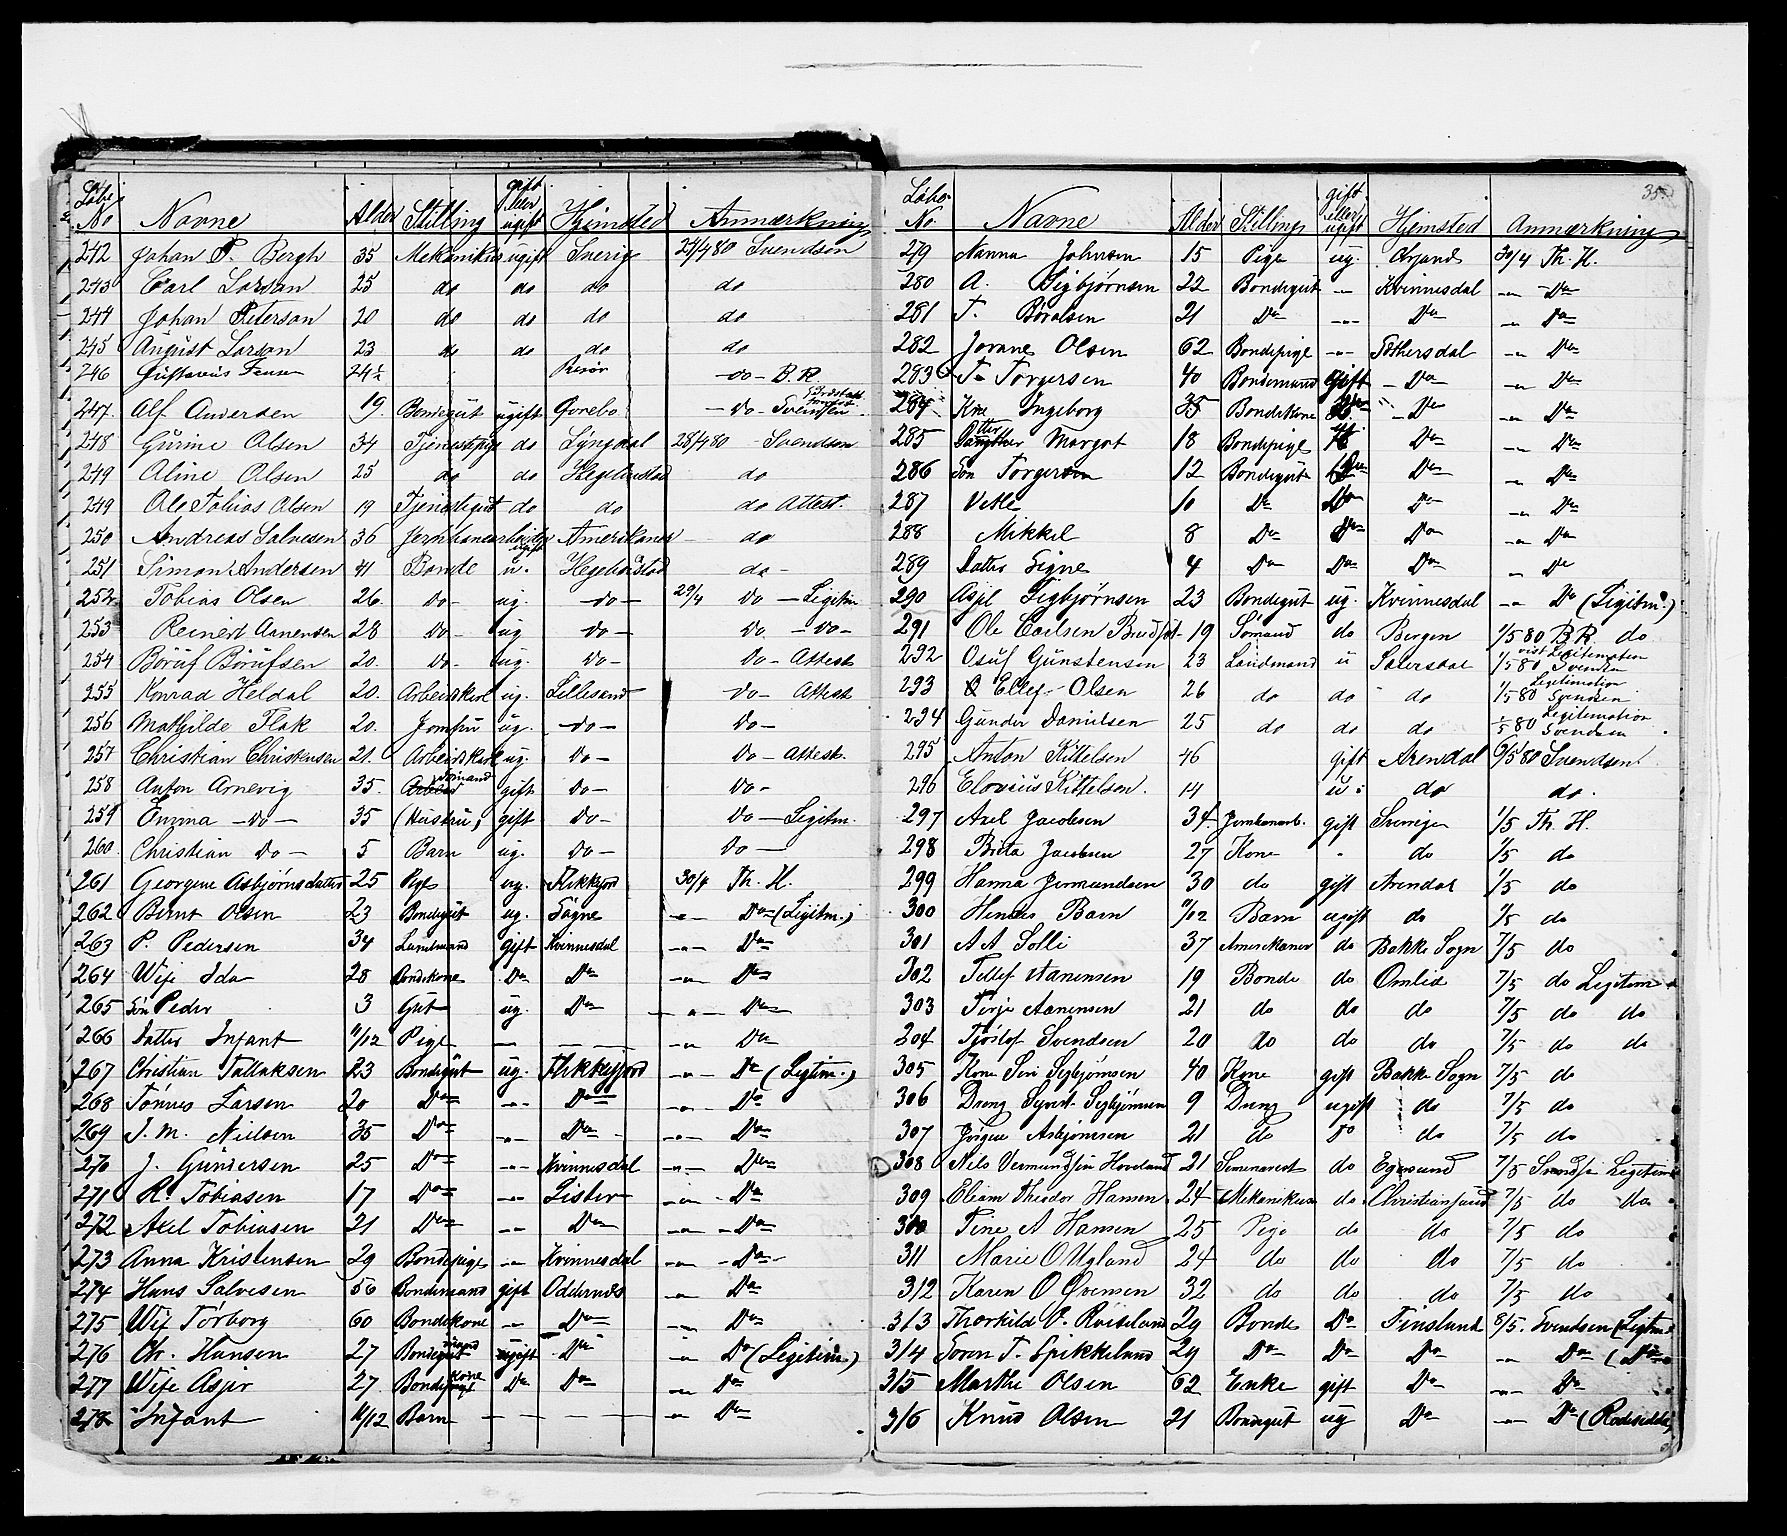 Løbe No Navne Alder Stilling gift eller ugift Hjemsted Anmærkning
242 Johan P. Bergh 35 Mekanikus ugift Sverig 24/4 80 Svendsen
243 Carl Larsan 25 do do do do
244 Johan Petersan 20 do do do do
245 August Larsan 23 do do do do
246 Gustavus 24½ Risør -do- B.R.
247. Alf Andersen 19. Bondegut ugift Øvrebo -do- Svendsen
248 Gurine Olsen 34 Tjenestpige do Lyngdal 28/4 80 Svendsen
249 Aline Olsen 25 do do Hegebostad do
249 Ole Tobias Olsen 19 Tjenestegut do do do Attest.
250 Andreas Salvesen 36 Jernbanearbeider ugift Amerikaner do
251 Simon Andersen 41 Bonde u. Hegebostad do -
252 Tobias Olsen 26. do - ug. - do - 29/4 do - Legitm
253 Reinert Aanensen 28 do - ug do - do - do -
254 Børuf Børufsen 20. do - ug. do - do - Attest
255 Konrad Heldal 20. Arbeidskarl ug. Lillesand do - Attest
256 Mathilde Flak 20. Jomfru ug. - do - do -
257 Christian Christensen 21. Arbeidskarl ug. do - do - Attest.
258 Anton Arnevig 35. Sømand gift do - do -
259 Emma - do - 35 (Hustru) gift do - do - Legitm.
260. Christian do - 5 Barn ug. do - do -
261 Georgene Asbjørnsdatter 25 Pige ug. Flekkefjord 30/4 Th. H.
262 Bernt Olsen 23 Bondegut ug. Søgne -"- Do (Legitm.)
263 P. Pedersen 34 Landmand gift Kvinnesdal -"- Do
264 Wife Ida 28 Bondekone Do Do -"- Do
265 Søn Peder 3 Gut ug. Do -"- Do
266 Datter Infant 11/12 Pige — — — -"- Do
267 Christian Tallaksen 23 Bondegut ug. Flekkefjord -"- Do (Legtim.)
268 Tønnes Larsen 20 Do -"- Do -"- Do
269 J. M. Nielsen 35 Do -"- Do -"- Do
270 J. Gundersen 25 Do -"- Kvinnesdal -"- Do
271 R. Tobiasen 17 Do -"- Lister -"- Do
272 Axel Tobiasen 21 Do -"- Do -"- Do
273 Anna Kristensen 29 Bondepige -"- Kvinnesdal -"- Do
274 Hans Salvesen 56 Bondemand gift Oddernes -"- Do
275 Wif Tørborg 60 Bondekone -"- Do -"- Do
276 Chr. Hansen 27 Bondemand ugift Do -"- Do (Legitim.)
277 Wife Asjer 27. Bondekone Do Do -"- Do
278 Infant 11/12 Barn — — — -"- Do
35.
Løbe No Navne Alder Stilling gift eller ugift Hjemsted Anmærkning
279 Nanna Johnsen 15 Pige ug. 30/4 Th. H.
280 A. Sigbjørnsen 22 Bondegut -"- Kvinnesdal -"- Do
281 T. Børulsen 21 Do -"- Do -"- Do
282 Jorane Olsen 62 Bondepige -"- Sæthersdal -"- Do
283 T. Torgersen 40 Bondemand gift - Do -"- Do
284 Kne Ingeborg 35 Bondekone Do - Do -"- Do
285 Datter Margot 18 Bondepige ug. Do -"- Do
286 Søn Torgersen 12 Bondegut Do Do -"- Do
287 Vetle 10 Do Do Do -"- Do
288 Mikkel 8 Do Do Do -"- Do
289 Datter Signe 4 Do Do Do -"- Do
290 Asjl Sigbjørnsen 23 Bondegut ug. Kvinnesdal -"- Do (Legitm.)
291 Ole Carlsen 19 Sømand do Bergen 1/5 80 B.R. do
292 Osuf Gunstensen 23 Landmand u Sætersdal 1/5 80 vist Legitimation Svendsen
293 Ellef Olsen 26 do do do 1/5 80 Legitimation Svendsen
294 Gunder Danielsen 25 do do do 1/5 80 Legitimation Svendsen
295 Anton Kittelsen 46 gift Arendal 6/5 80 Svendsen
296 Elovius Kittelsen. 14 u. do do.
297 Axel Jacobsen 34 Jernbanearb. gift Sverrige 1/5 Th. H.
298 Brita Jacobsen 27 Kone " do 1/5 do
299 Hanna Jermundsen 30 do gift Arendal 1/5 do
300 Hendes Barn 11/12 Barn ugift do 1/5 do
301 A A Solli 37 Amerikaner do Bakke Sogn 7/5 do
302 Tellef Aanensen 19 Bonde do Omlid 7/5 do Legitim
303 Terje Aanensen 21 do do do 7/5 do do
304 Tjøstof Svendsen 20 do do do 7/5 do do
305 Kone Siri Sigbjørnsen 40 Kone gift Bakke Sogn 7/5 do
306 Dreng Syvert Sigbjørnsen 9 Dreng ugift do 7/5 do
307 Jørgine Asbjørnsen 21 do do do 7/5 do
308 Nils Vermundsen Hovland 21 do Egersund 7/5 Svendsen Legitim
309 Eliam Theodor Hansen 24 Mekanikus do Christiansund 7/5 do do
310 Tine A Hansen 25 Pige do do 7/5 do
311 Marie O Ugland 24 do do do 7/5 do
312 Karen O Øvensen 32 do do do 7/5 do
313 Thorkild O. Røiseland 29 Bonde Do Finsland 8/5. Svendsen (Legtm
314 Søren T. Spikkeland 29 Do Do Do -"- Do (Do
315 Marthe Olsen 62 Enke gift Do -"- Do
316 Knud Olsen 21 Bondegut ug Do -"- Do (Rodeseddel)